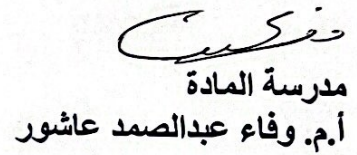 مدرسة المادة
أ.م. وفاء عبدالصمد عاشور